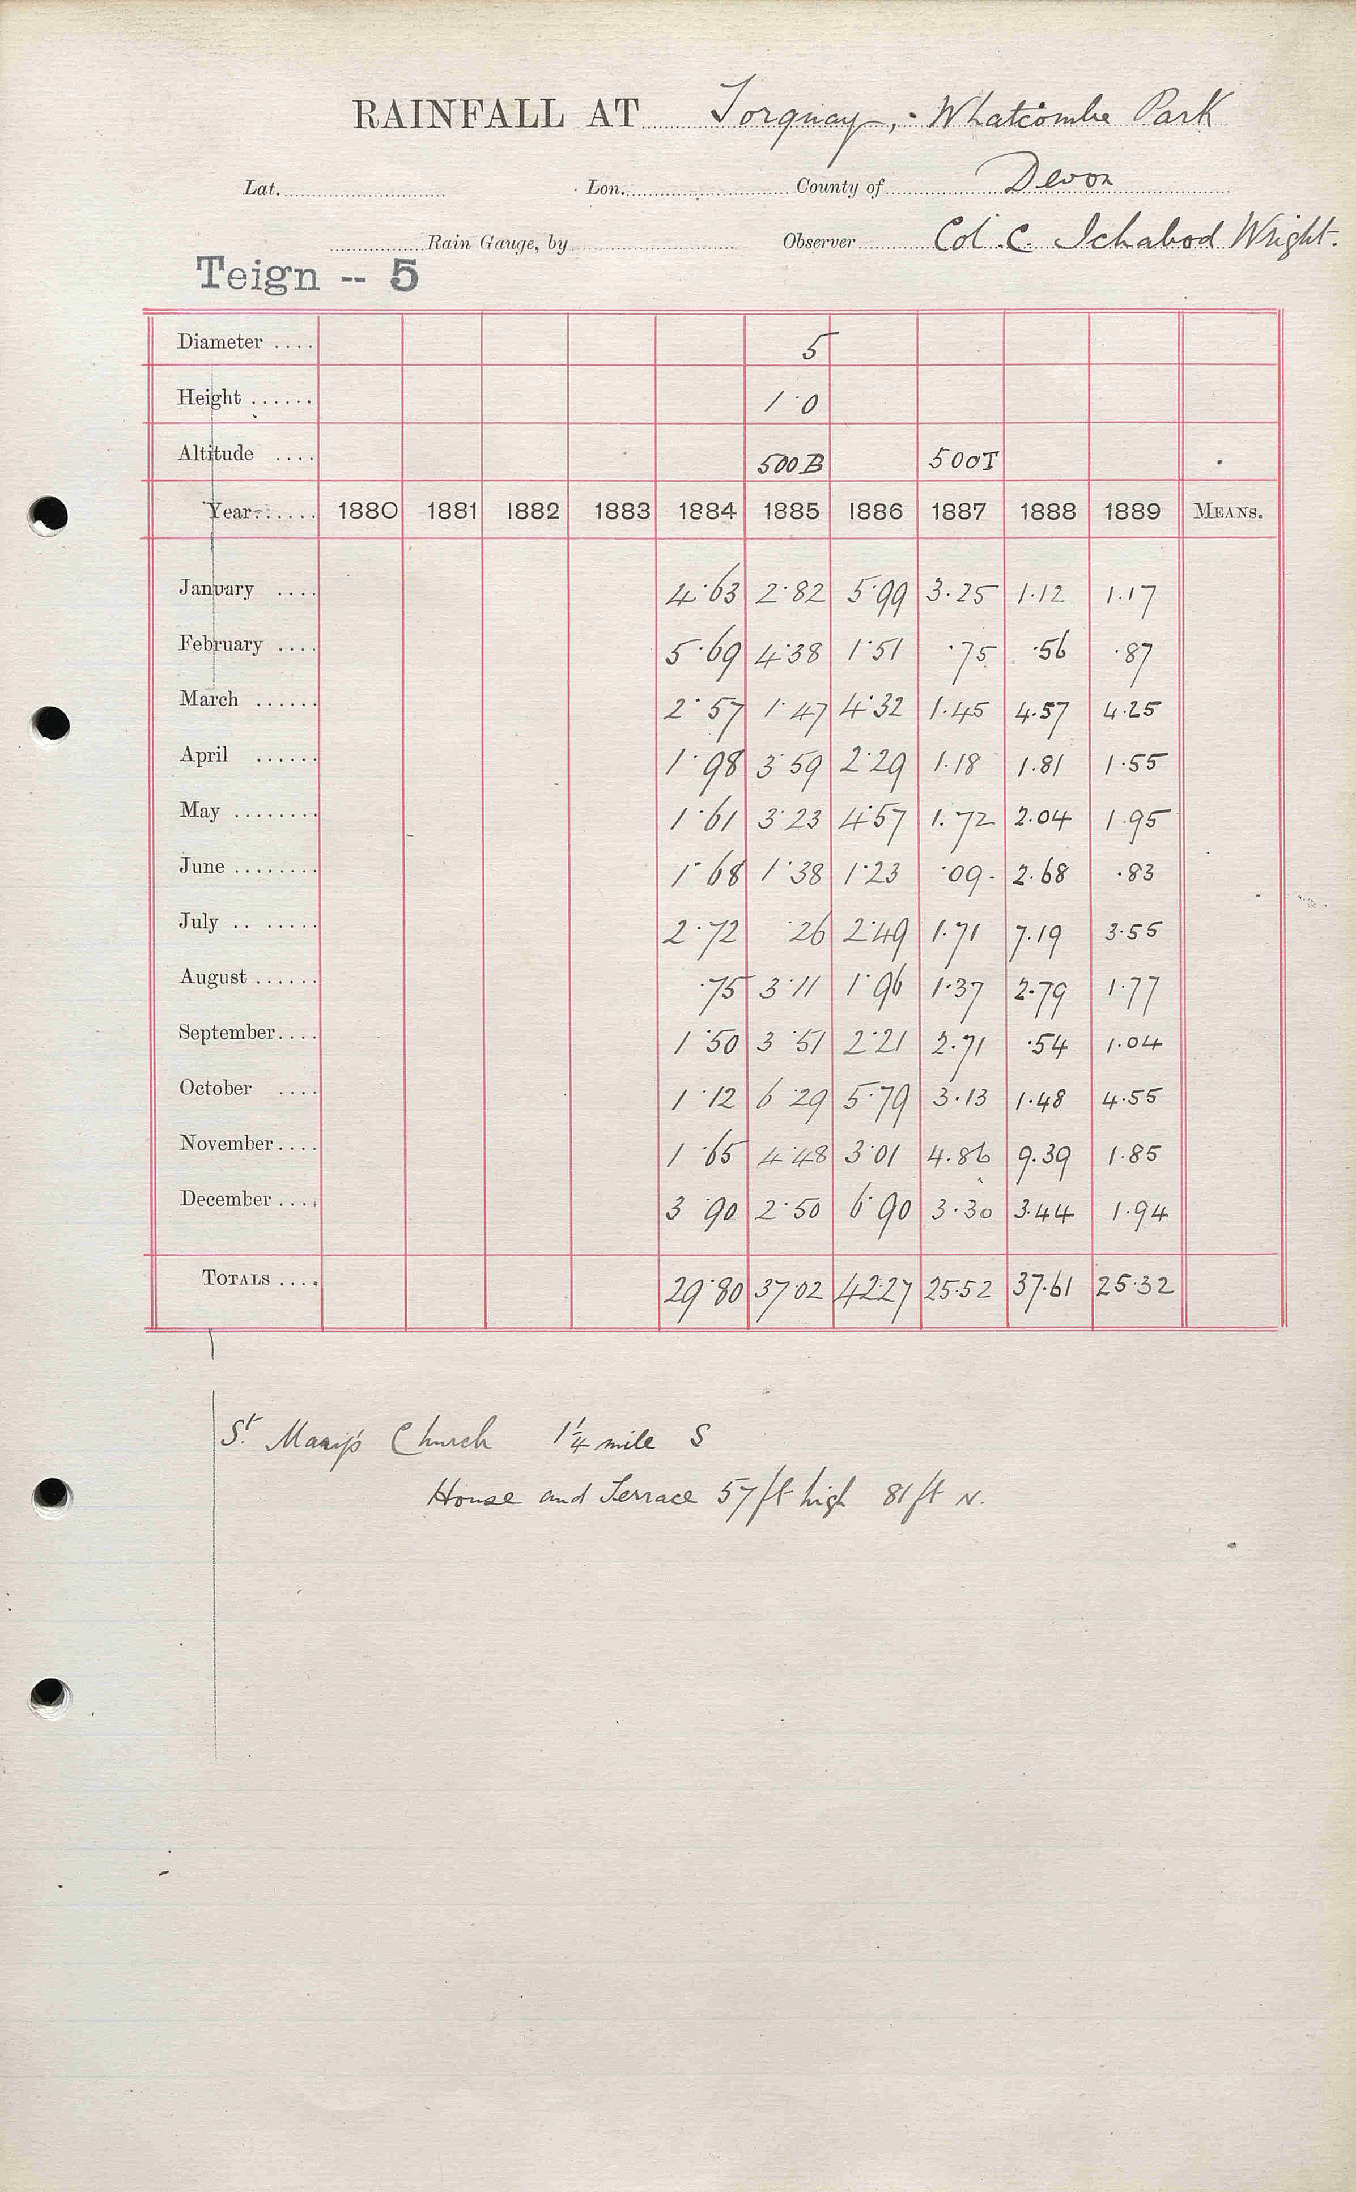 RAINFALL AT Torquay, - Whatcombe Park
Lat. Lon. County of Devon
Rain Gauge, by Observer Col. C. Ichabod Wright.
Teign -- 5
Diameter .... 5
Height ...... 1·0
Altitude .... 500B 500T
Year ...... 1880 1881 1882 1883 1884 1885 1886 1887 1888 1889 MEANS.
January .... 4·63 2·82 5·99 3·25 1·12 1·17
February .... 5·69 4·38 1·51 ·75 ·56 ·87
March ...... 2·57 1·47 4·32 1·45 4·57 4·25
April ...... 1·98 3·59 2·29 1·18 1·81 1·55
May ........ 1·61 3·23 4·57 1·72 2·04 1·95
June ........ 1·68 1·38 1·23 ·09 2·68 ·83
July .. ..... 2·72 ·26 2·49 1·71 7·19 3·55
August ...... ·75 3·11 1·96 1·37 2·79 1·77
September.... 1·50 3·51 2·21 2·71 ·54 1·04
October .... 1·12 6·29 5·79 3·13 1·48 4·55
November.... 1·65 4·48 3·01 4·86 9·39 1·85
December .... 3·90 2·50 6·90 3·30 3·44 1·94
TOTALS .... 29·80 37·02 42·27 25·52 37·61 25·32
St. Mary's Church 1¼ mile S
House and Terrace 57 ft high 81 ft N.